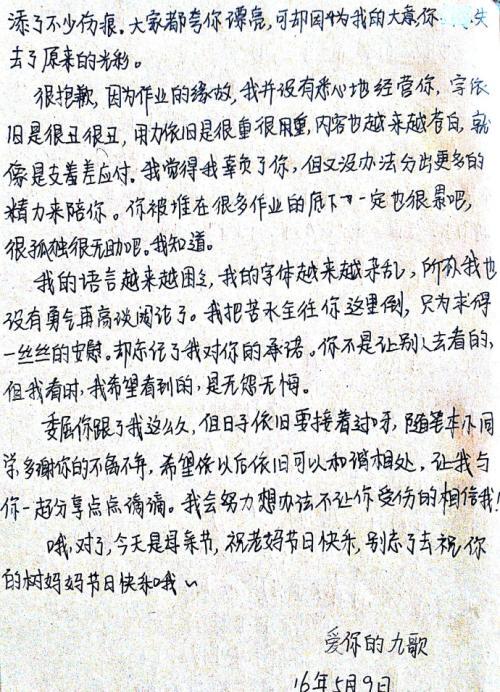 添了不少伤痕。大家都夸你漂亮,可却因为我的大意你失
去了原来的光彩。
很抱歉,因为作业的缘故,我并没有悉心地经营你,字依
旧是很丑很丑,用力依旧是很重很用重,内容也越来越苍白,就
像是支差差应付。我觉得我辜负了你,但又没办法分出更多的
精力来陪你。你被堆在很多作业的底下一定也很累吧,
很孤独很无助吧。我知道。
我的语言越来越困乏,我的字体越来越杂乱,所以我也
没有勇气再高谈阔论了。我把苦水全往你这里倒,只为求得
一丝丝的安慰。却忘记了我对你的承诺。你不是让别人去看的,
但我看时,我希望看到的,是无怨无悔。
委屈你跟了我这么久,但日子依旧要接着过呀,随笔本不同
学,多谢你的不离不弃,希望依以后依旧可以和谐相处,让我与
你一起分享点点滴滴。我会努力想办法不让你受伤的相信我!
哦,对了,今天是母亲节,祝老妈节日快乐,别忘了去祝你
的树妈妈节日快乐哦~
爱你的九歌
16年5月9日